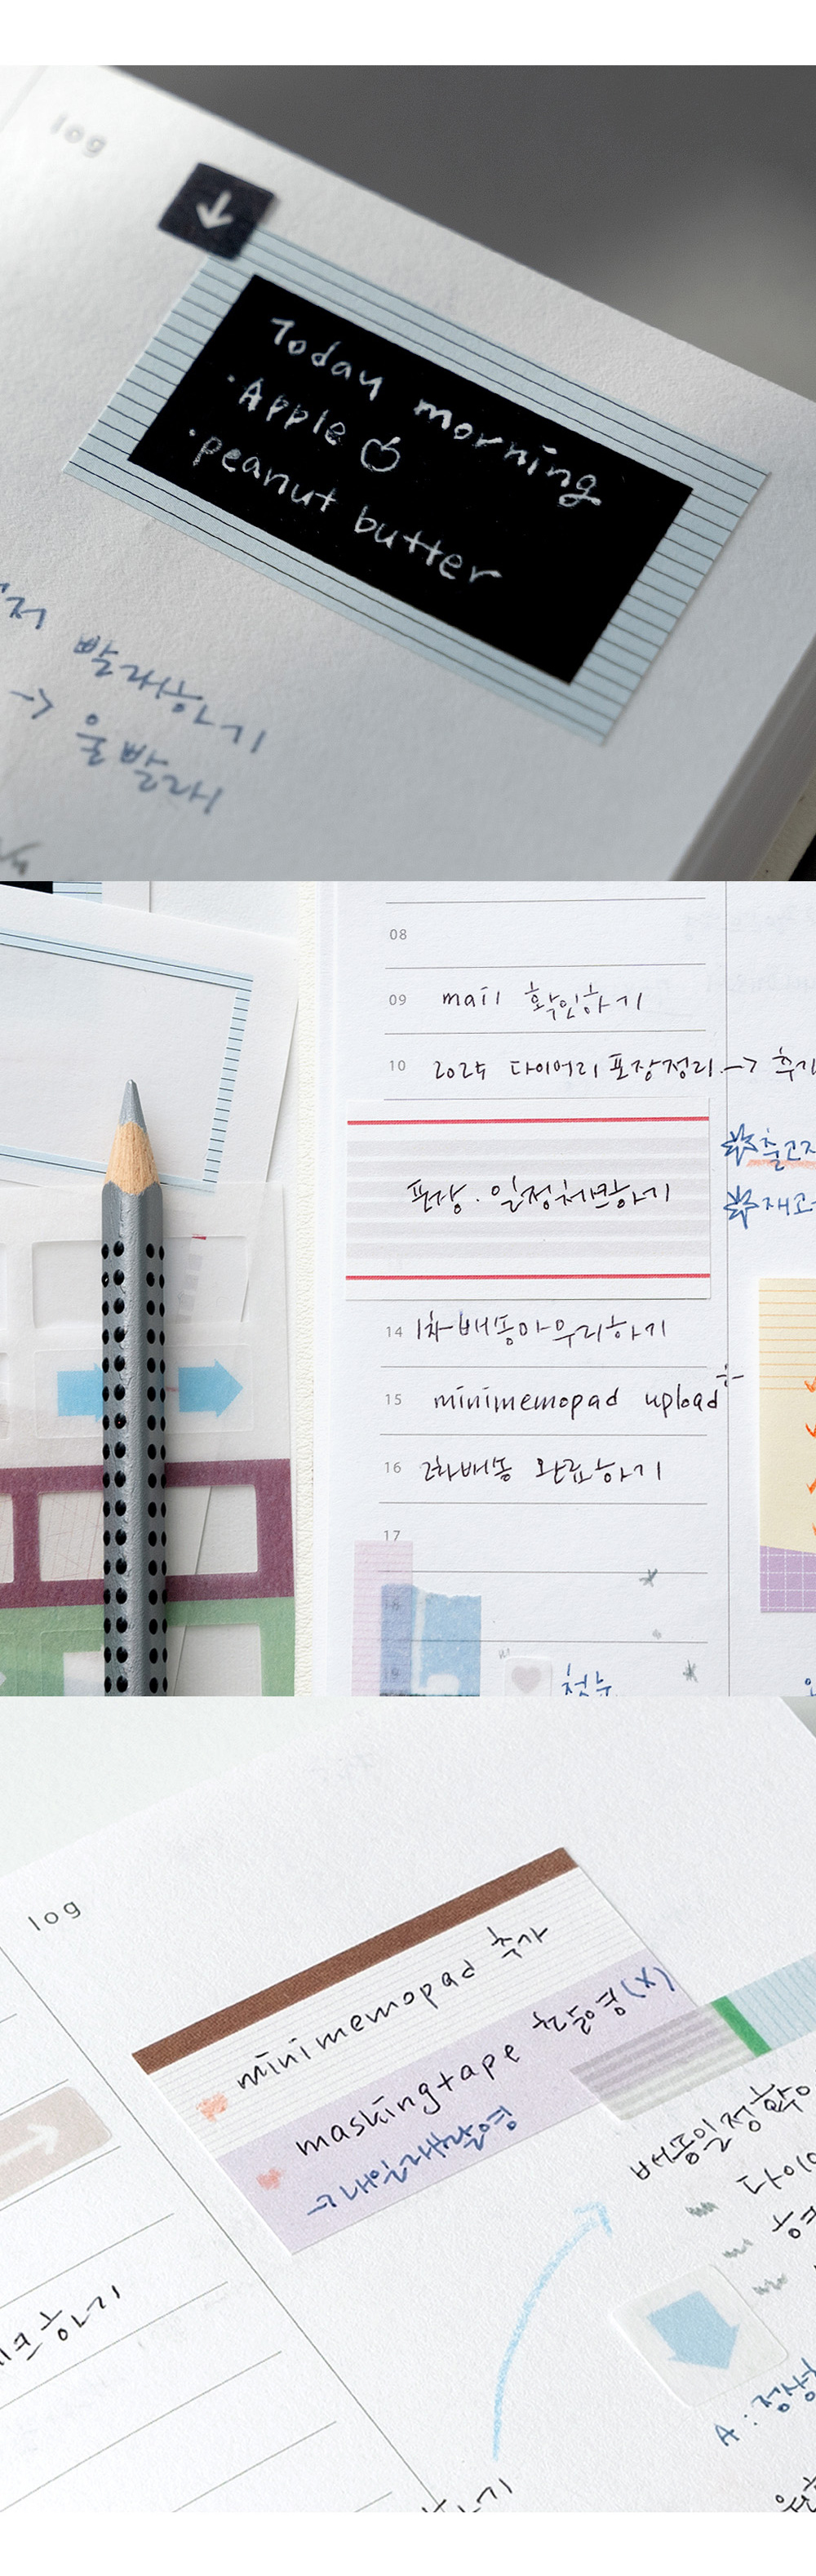 log
Today morning
·Apple
·peanut butter
빨래하기
→ 울빨래
08
09 mail 확인하기
10 2025 다이어리 포장정리 →
포장·일정체크하기
14 1차배송마무리하기
15 minimemopad upload
16 2차배송 완료하기
17
18
19
첫눈
log
minimemopad 추가
maskingtape 촬영(X)
→내일재촬영
배송일정확인
하기
A :